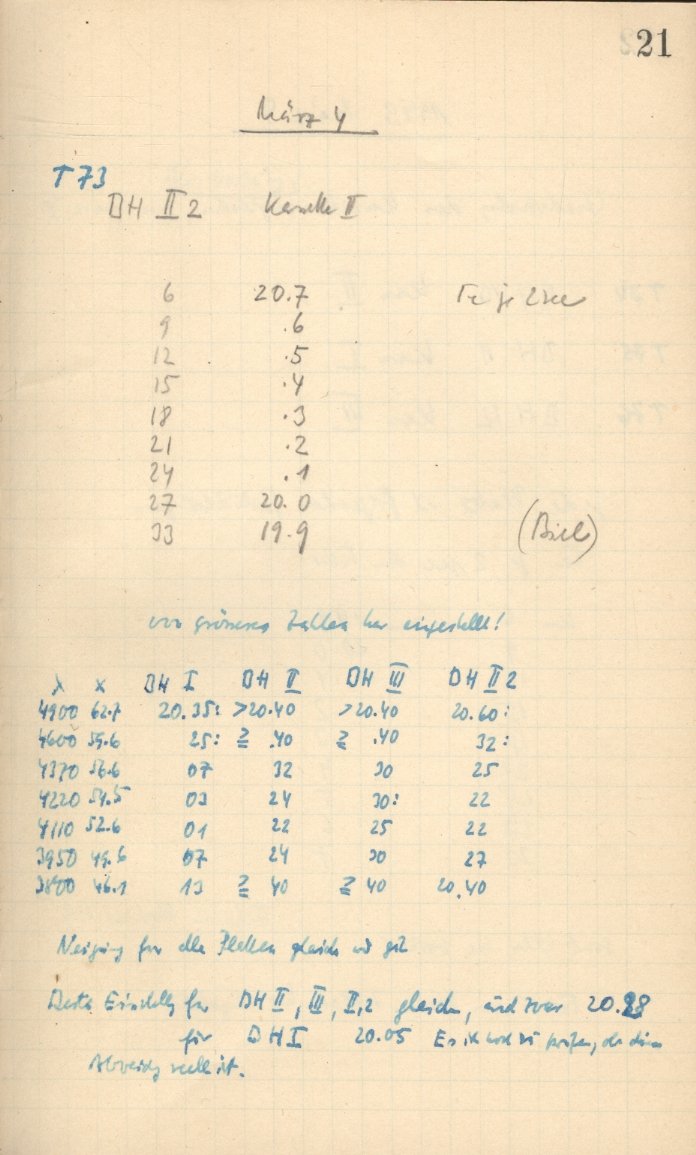 21
März 4
T 73
DH II 2 Kassette II
6 20.7 Fe je 2 sec
9 .6
12 .5
15 .4
18 .3
21 .2
24 .1
27 20.0
33 19.9 (Biel)
von grösseren Zahlen her eingestellt!
λ x DH I DH II DH III DH II 2
4900 62.7 20.35: >20.40 >20.40 20.60:
4600 59.6 25: ≧ .40 ≧ .40 32:
4370 56.6 07 32 30 25
4220 54.5 03 24 30: 22
4110 52.6 01 22 25 22
3950 49.6 07 24 30 27
3800 46.1 13 ≧ 40 ≧ 40 20.40
Neigung für alle Platten gleich und gut
Beste Einstellg für DH II, III, II,2 gleich, und zwar 20.28
für DH I 20.05 Es ist noch zu prüfen, ob diese
Abweichg reell ist.